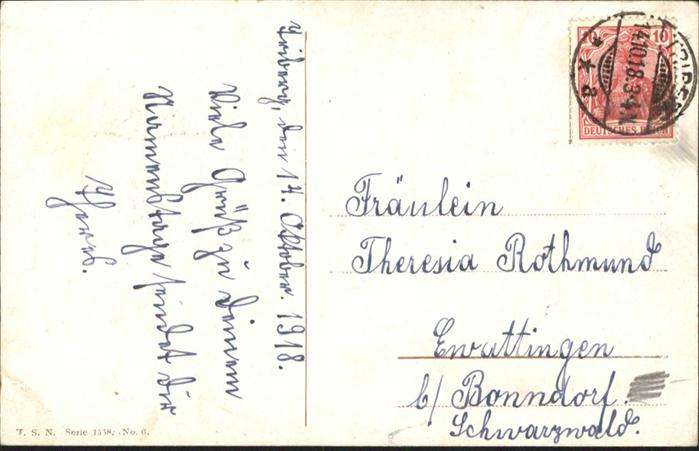 Triberg, den 14. Oktober. 1918.
Viele Grüße zu deinem
Namenstage sendet dir
Theres.
10
14.10.18.3-4.N
TRIBERG
DEUTSCHES REICH
Fräulein
Theresia Rothmund
Ewattingen
b/ Bonndorf.
Schwarzwald.
T. S. N. Serie 1558, No. 6.